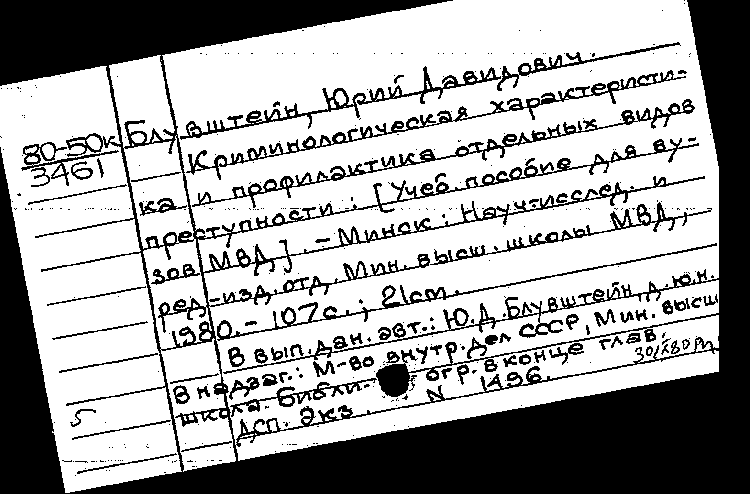 Блувштейн, Юрий Давидович.
80-50к
3461
Криминологическая характеристи-
ка и профилактика отдельных видов
преступности : [Учеб. пособие для ву-
зов МВД]. - Минск : Науч.-исслед. и
ред.-изд. отд. Мин. высш. школы МВД,
1980. - 107 с. ; 21 см.
В вып. дан. авт.: Ю.Д. Блувштейн, д.ю.н.
В надзаг.: М-во внутр. дел СССР, Мин. высш
школа. Библи- огр. в конце глав.
ДСП. Экз. N 1496.
5